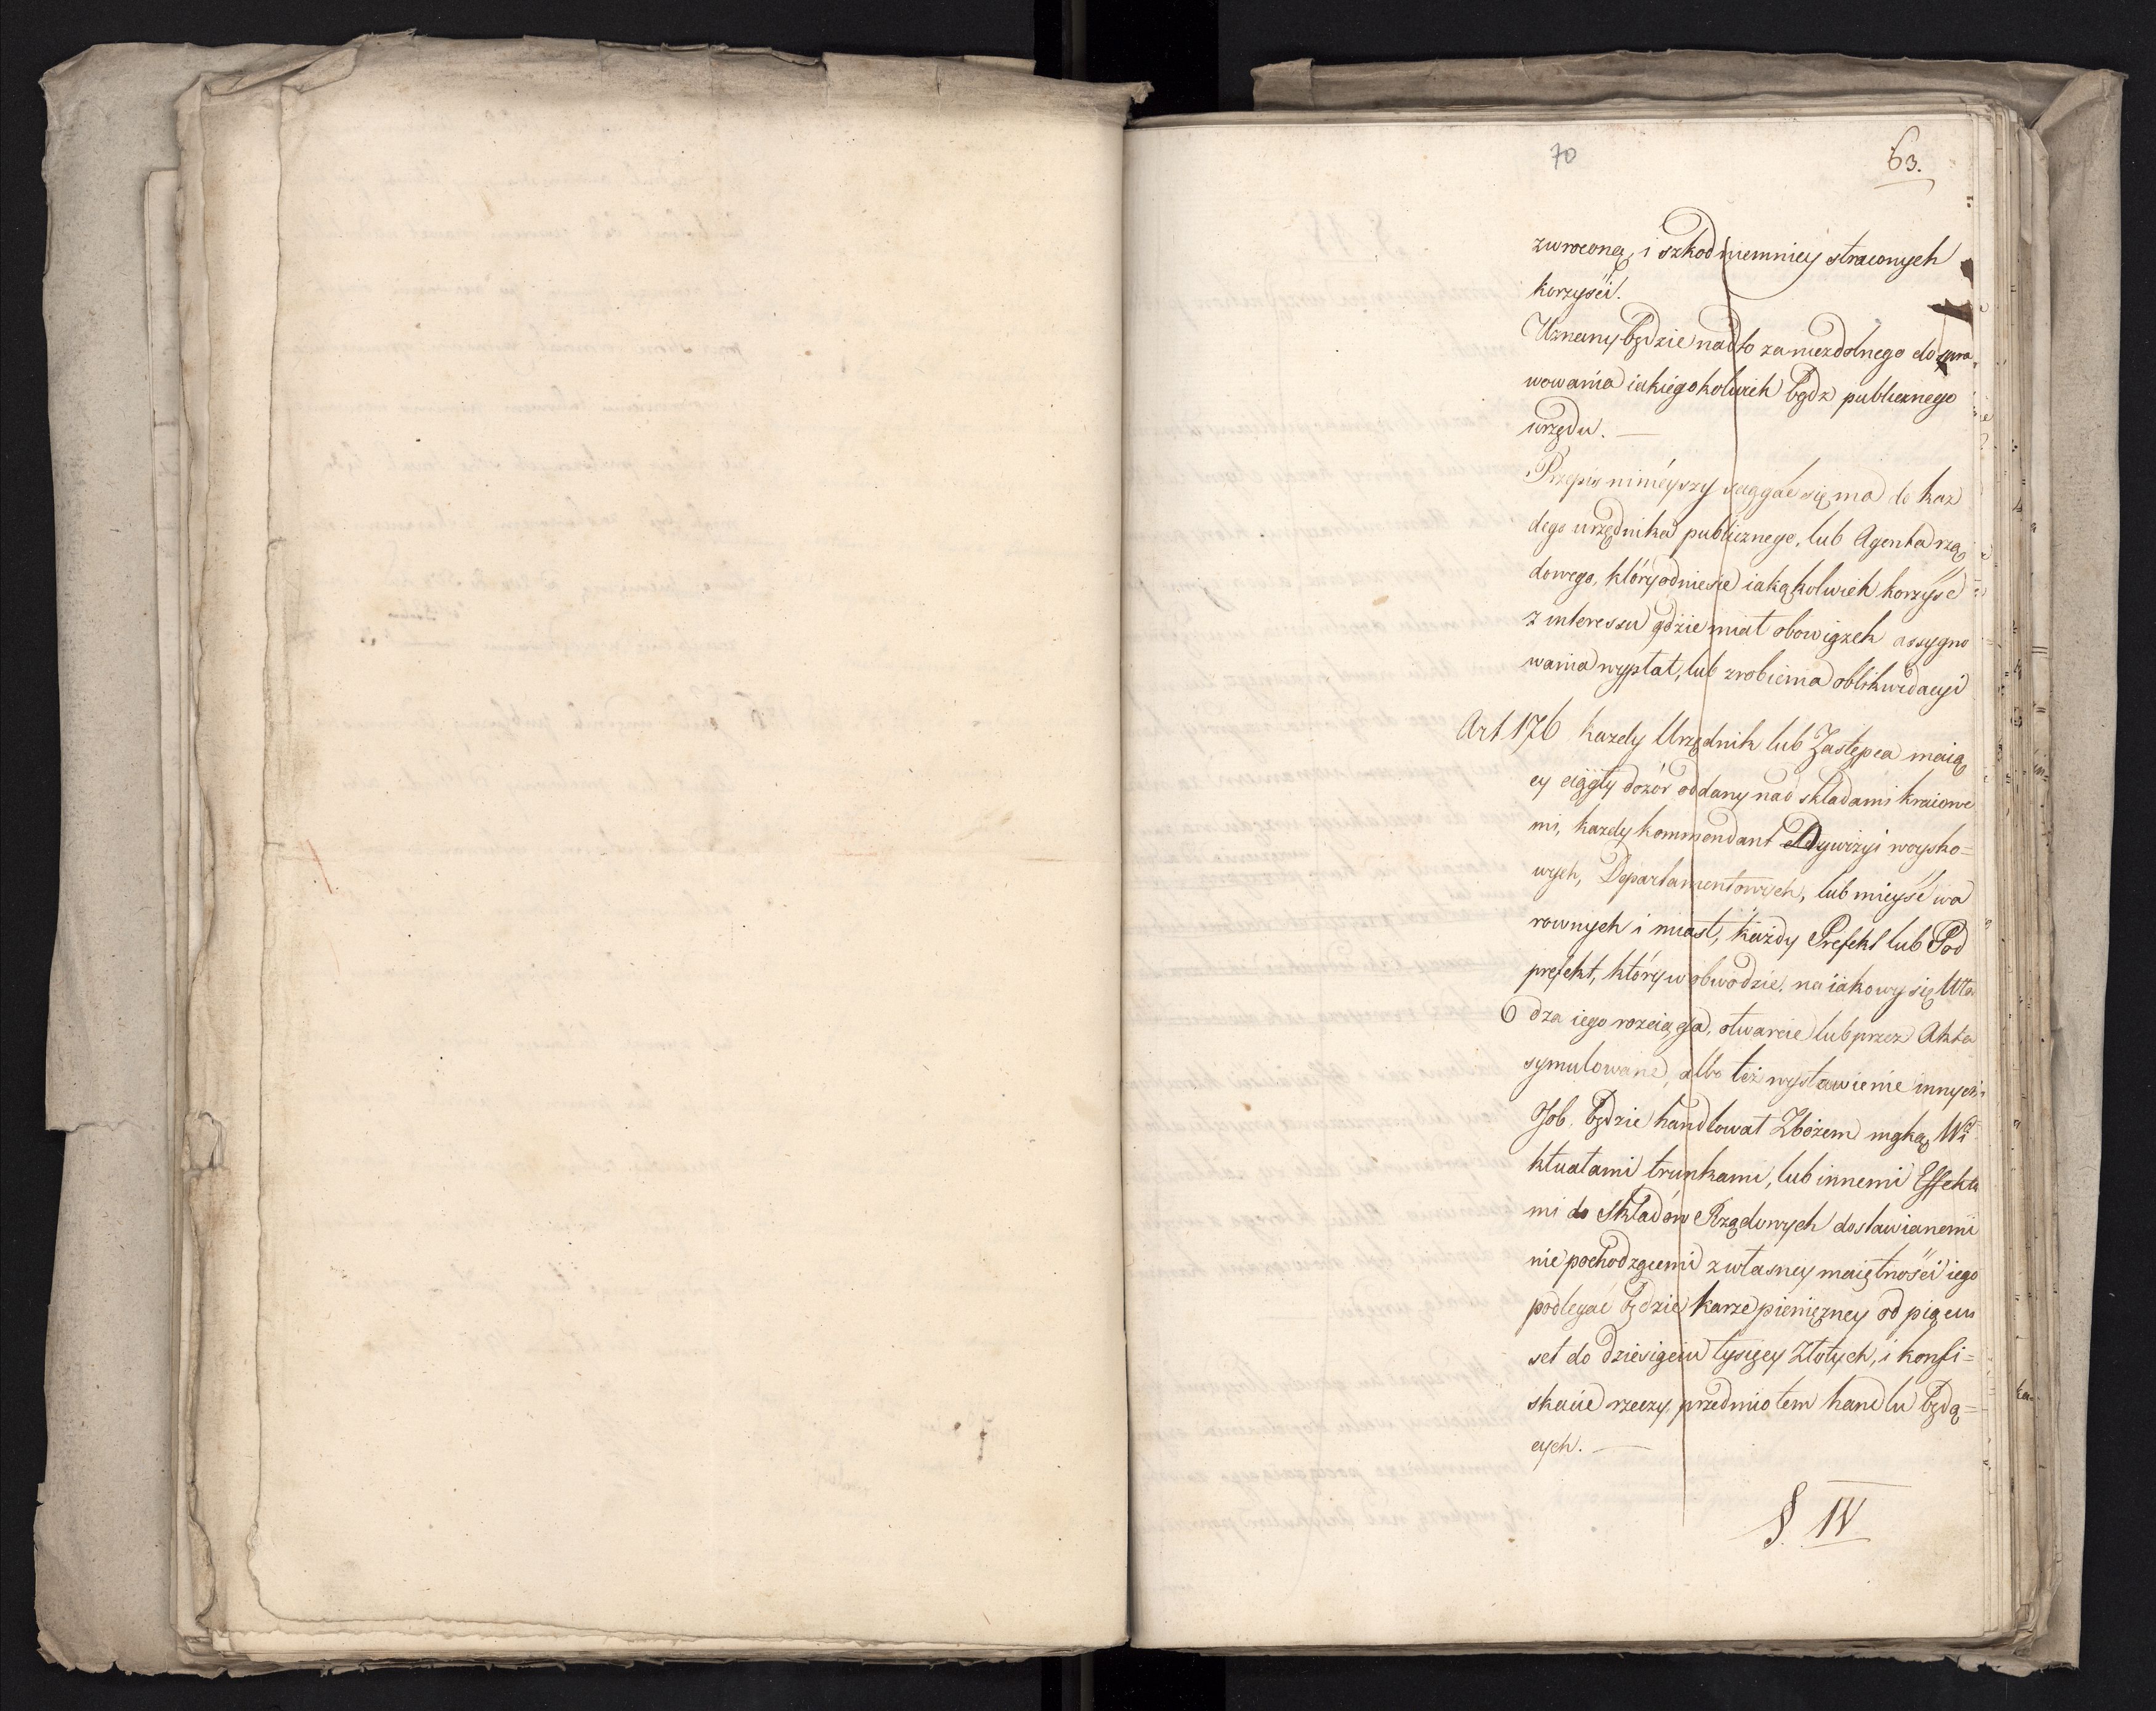 70
63.
zwroconą, i szkod niemniey straconych
korzyści.
Uznany będzie nadto za niezdolnego do spra
wowania iakiegokolwiek bądz publicznego
urzędu. —
Przepis ninieyszy sciągać się ma do kaz
dego urzędnika publicznego, lub Agenta rzą
dowego, który odniesie iakąkolwiek korzyść
z interessu gdzie miał obowiązek assygno
wania wypłat, lub zrobienia oblikwidacyi
Art 176 każdy Urzędnik lub Zastępca maią
cy ciągły dozór oddany nad składami kraiowe
mi, każdy kommendant Dywizyi woysko=
wych, Departamentowych, lub mieysc wa
rownych i miast, każdy Prefekt lub Pod
prefekt, który w obwodzie, na iakowy się Wła
dza iego rozciąga, otwarcie lub przez Akta
symulowane, albo też wystawienie innych
Osob, będzie handlował Zbożem mąką, Wi
ktuałami trunkami, lub innemi Effekta
mi do Składów Rządowych dostawianemi
nie pochodzącemi z własney maiętności iego
podlegać będzie karze pieniężney od pięciu
set do dziesięciu tysięcy Złotych, i konfi=
skacie rzeczy przedmiotem handlu będą=
cych. —
§. IV